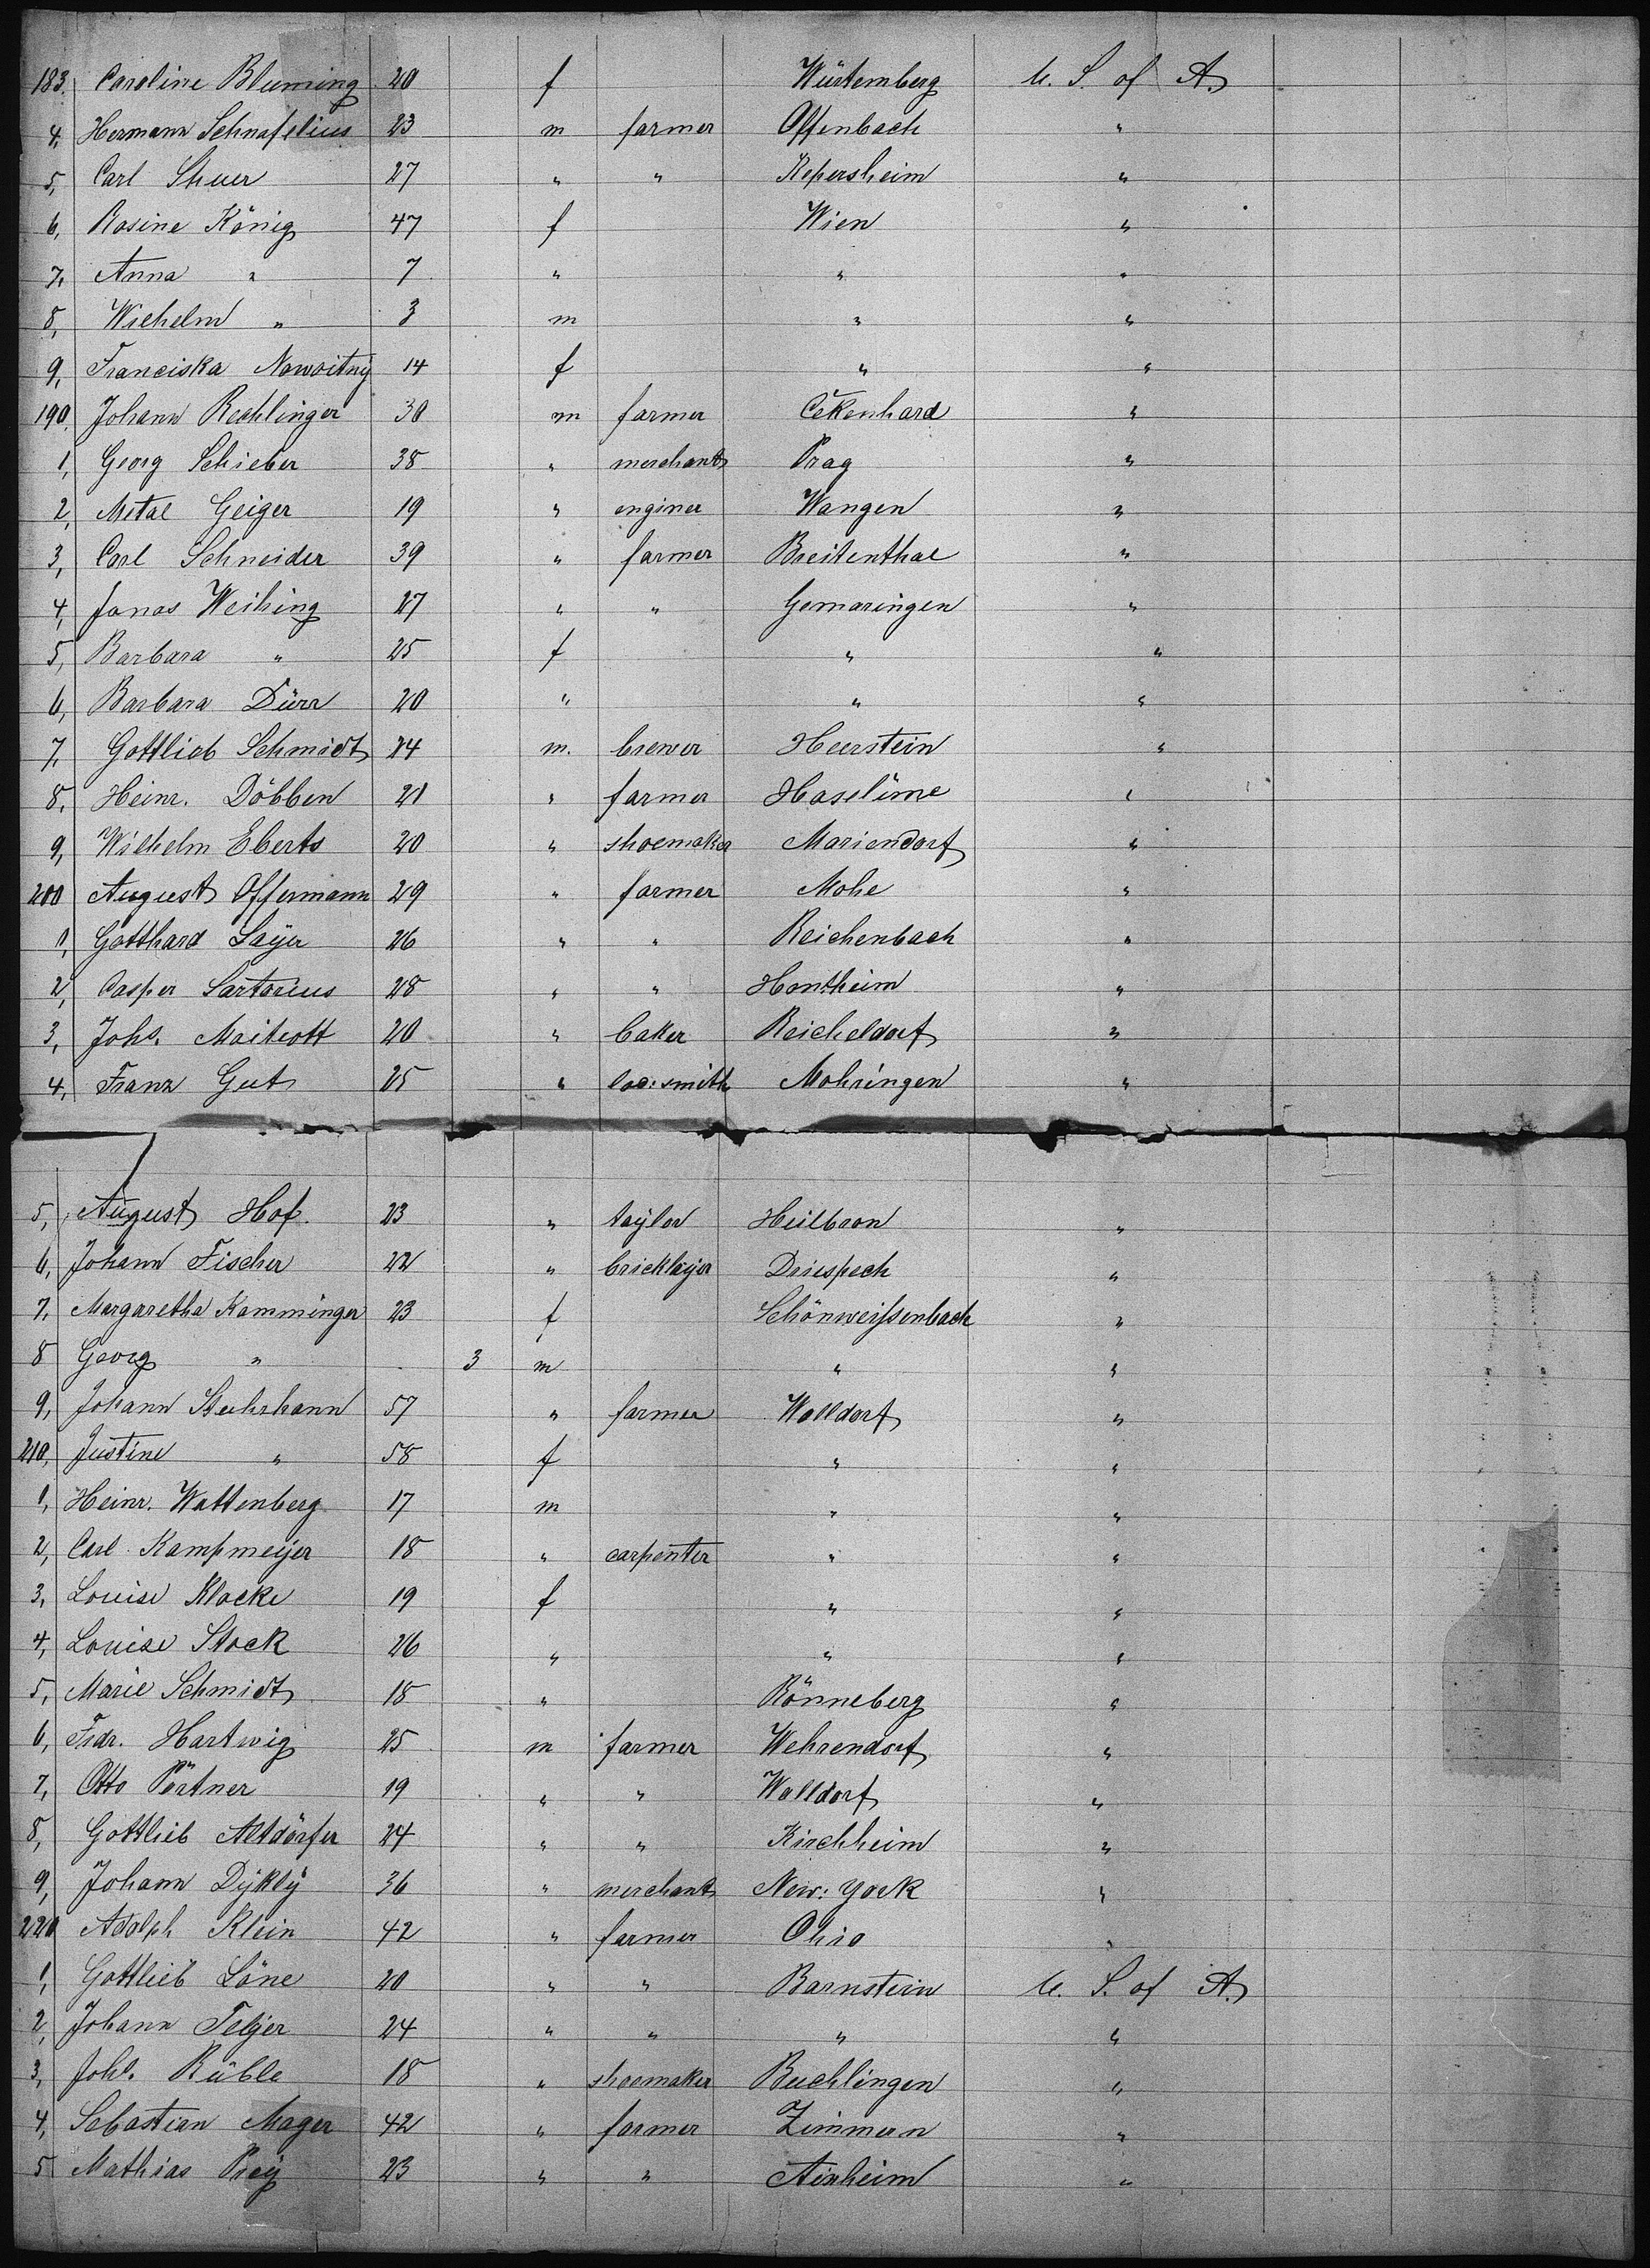 183. Caroline Bluming 20 f Würtemberg U. S. of A.
4, Hermann Schnafelius 23 m farmer Offenbach "
5, Carl Shuer 27 " " Repersheim "
6, Rosine König 47 f Wien "
7, Anna " 7 " " "
8, Wilhelm " 3 m " "
9, Franciska Nowoitny 14 f " "
190, Johann Rechlinger 30 m farmer Cekenhard "
1, Georg Schieber 38 " merchant Prag "
2, Metal Geiger 19 " enginer Wangen "
3, Carl Schneider 39 " farmer Breitenthal "
4, Jonas Weihing 27 " " Gomaringen "
5, Barbara " 25 f " "
6, Barbara Dürr 20 " " "
7, Gottlieb Schmidt 24 m. brewer Heerstein "
8, Heinr. Döbben 21 " farmer Haselüne "
9, Wilhelm Eberts 20 " shoemaker Mariendorf "
200 August Offermann 29 " farmer Mohe "
1, Gotthard Layer 26 " " Reichenbach "
2, Casper Sartorius 28 " " Hontheim "
3, Johs. Maitrott 20 " baker Reicheldorf "
4, Franz Gut 25 " loc:smith Mohringen "
5, August Hof. 23 " taylor Heilbron "
6, Johann Fischer 22 " bricklayer Driespech "
7, Margaretha Kamminger 23 f Schönweissenbach "
8 Georg " 3 m " "
9, Johann Stuhrhann 57 " farmer Walldorf "
210, Justine " 58 f " "
1, Heinr. Wattenberg 17 m " "
2, Carl Kampmeyer 18 " carpenter " "
3, Louise Klocke 19 f " "
4, Louise Stock 26 " " "
5, Marie Schmidt 18 " Rönneberg "
6, Frdr. Hartwig 25 m farmer Wehrendorf "
7, Otto Pörtner 19 " " Walldorf "
8, Gottlieb Altdörfer 24 " " Kirchheim "
9, Johann Dykly 36 " merchant New: York "
220 Adolph Klein 42 " farmer Ohio "
1, Gottlieb Löne 20 " " Barnstein U. S. of A.
2, Johann Teljer 24 " " " "
3, Johs. Rüble 18 " shoemaker Buchlingen "
4, Sebastian Mager 42 " farmer Zimmern "
5 Mathias Prey 23 " " Aixheim "